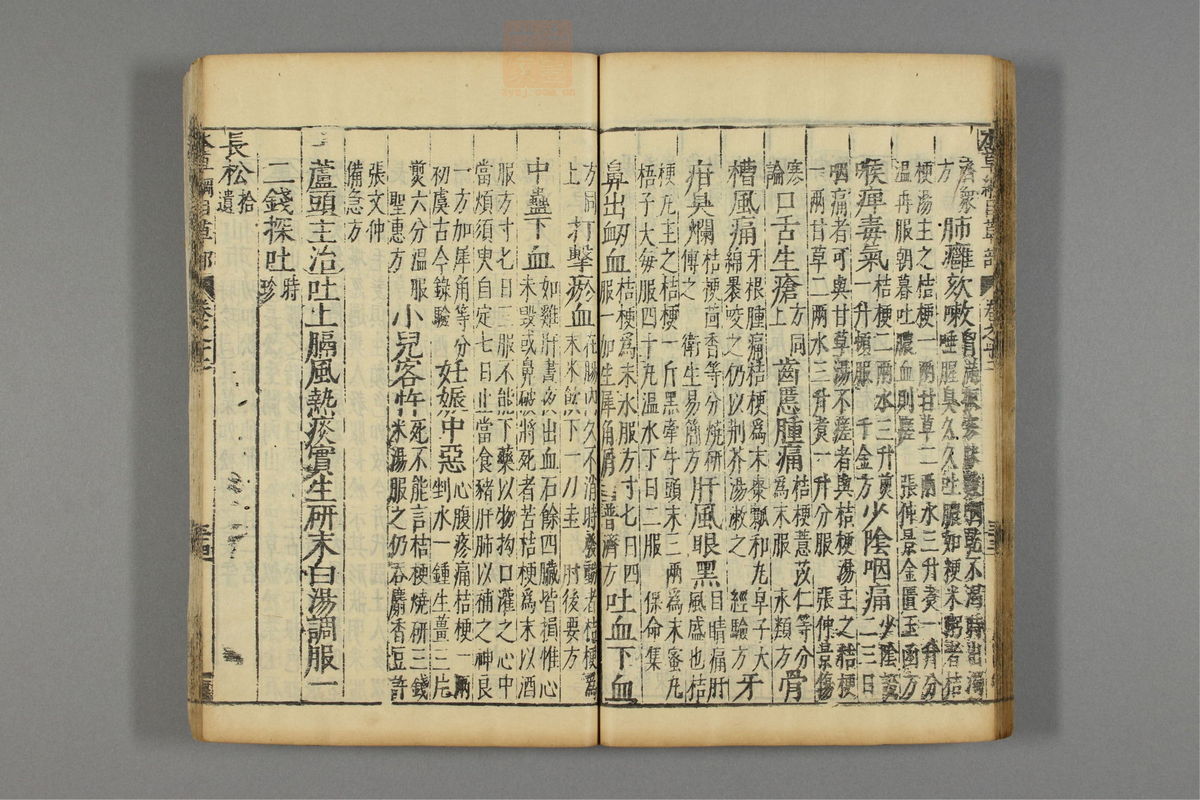 本草綱目草部 卷之十二
濟衆方 肺癰欬嗽 胸滿振寒脉數咽乾不渴時出濁唾腥臭久久吐膿如粳米粥者桔
梗湯主之桔梗一兩甘草二兩水三升煑一升分
温再服朝暮吐膿血則瘥 張仲景金匱玉函方
喉痺毒氣 桔梗二兩水三升煎一升頓服 千金方 少陰咽痛 少陰證二三日
咽痛者可與甘草湯不瘥者與桔梗湯主之桔梗
一兩甘草二兩水三升煑一升分服 張仲景傷
寒論 口舌生瘡 方同上 齒䘌腫痛 桔梗薏苡仁等分爲末服 永類方 骨
槽風痛 牙根腫痛桔梗爲末棗瓤和丸皂子大綿褁咬之仍以荆芥湯漱之 經驗方 牙
疳臭爛 桔梗茴香等分燒研傅之 衛生易簡方 肝風眼黑 目睛痛肝風盛也桔
梗丸主之桔梗一斤黑牽牛頭末三兩爲末蜜丸
梧子大每服四十丸温水下日二服 保命集
鼻出衂血 桔梗爲末水服方寸七日四服一加生犀角屑 普濟方 吐血下血
方同上 打擊瘀血 在腸内久不消時發動者桔梗爲末米飲下一刀圭 肘後要方
中蠱下血 如雞肝晝夜出血石餘四臟皆損惟心未毁或鼻破將死者苦桔梗爲末以酒
服方寸七日三服不能下藥以物拘口灌之心中
當煩須臾自定七日止當食猪肝肺以補之神良
一方加犀角等分 初虞古今錄驗 妊娠中惡 心腹疼痛桔梗一兩剉水一鍾生薑三片
煎六分温服 聖惠方 小兒客忤 死不能言桔梗燒研三錢米湯服之仍吞麝香豆許
張文仲備急方
蘆頭主治吐上膈風熱痰實生研末白湯調服一
二錢探吐 時珍
長松 拾遺
本草綱目草部 卷之十二